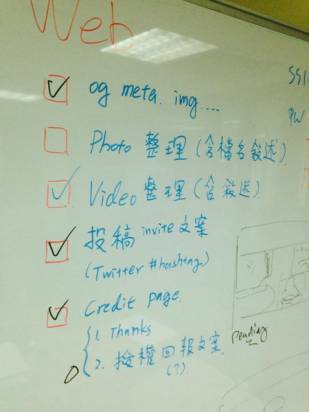 Web
og meta. img....
Photo 整理 (含檔名敘述)
Video 整理 (含敘述)
投稿 invite 文案
(Twitter #hashtag)
Credit page.
1. Thanks
2. 授權回報文案.
(?)
SSI
PW
pending